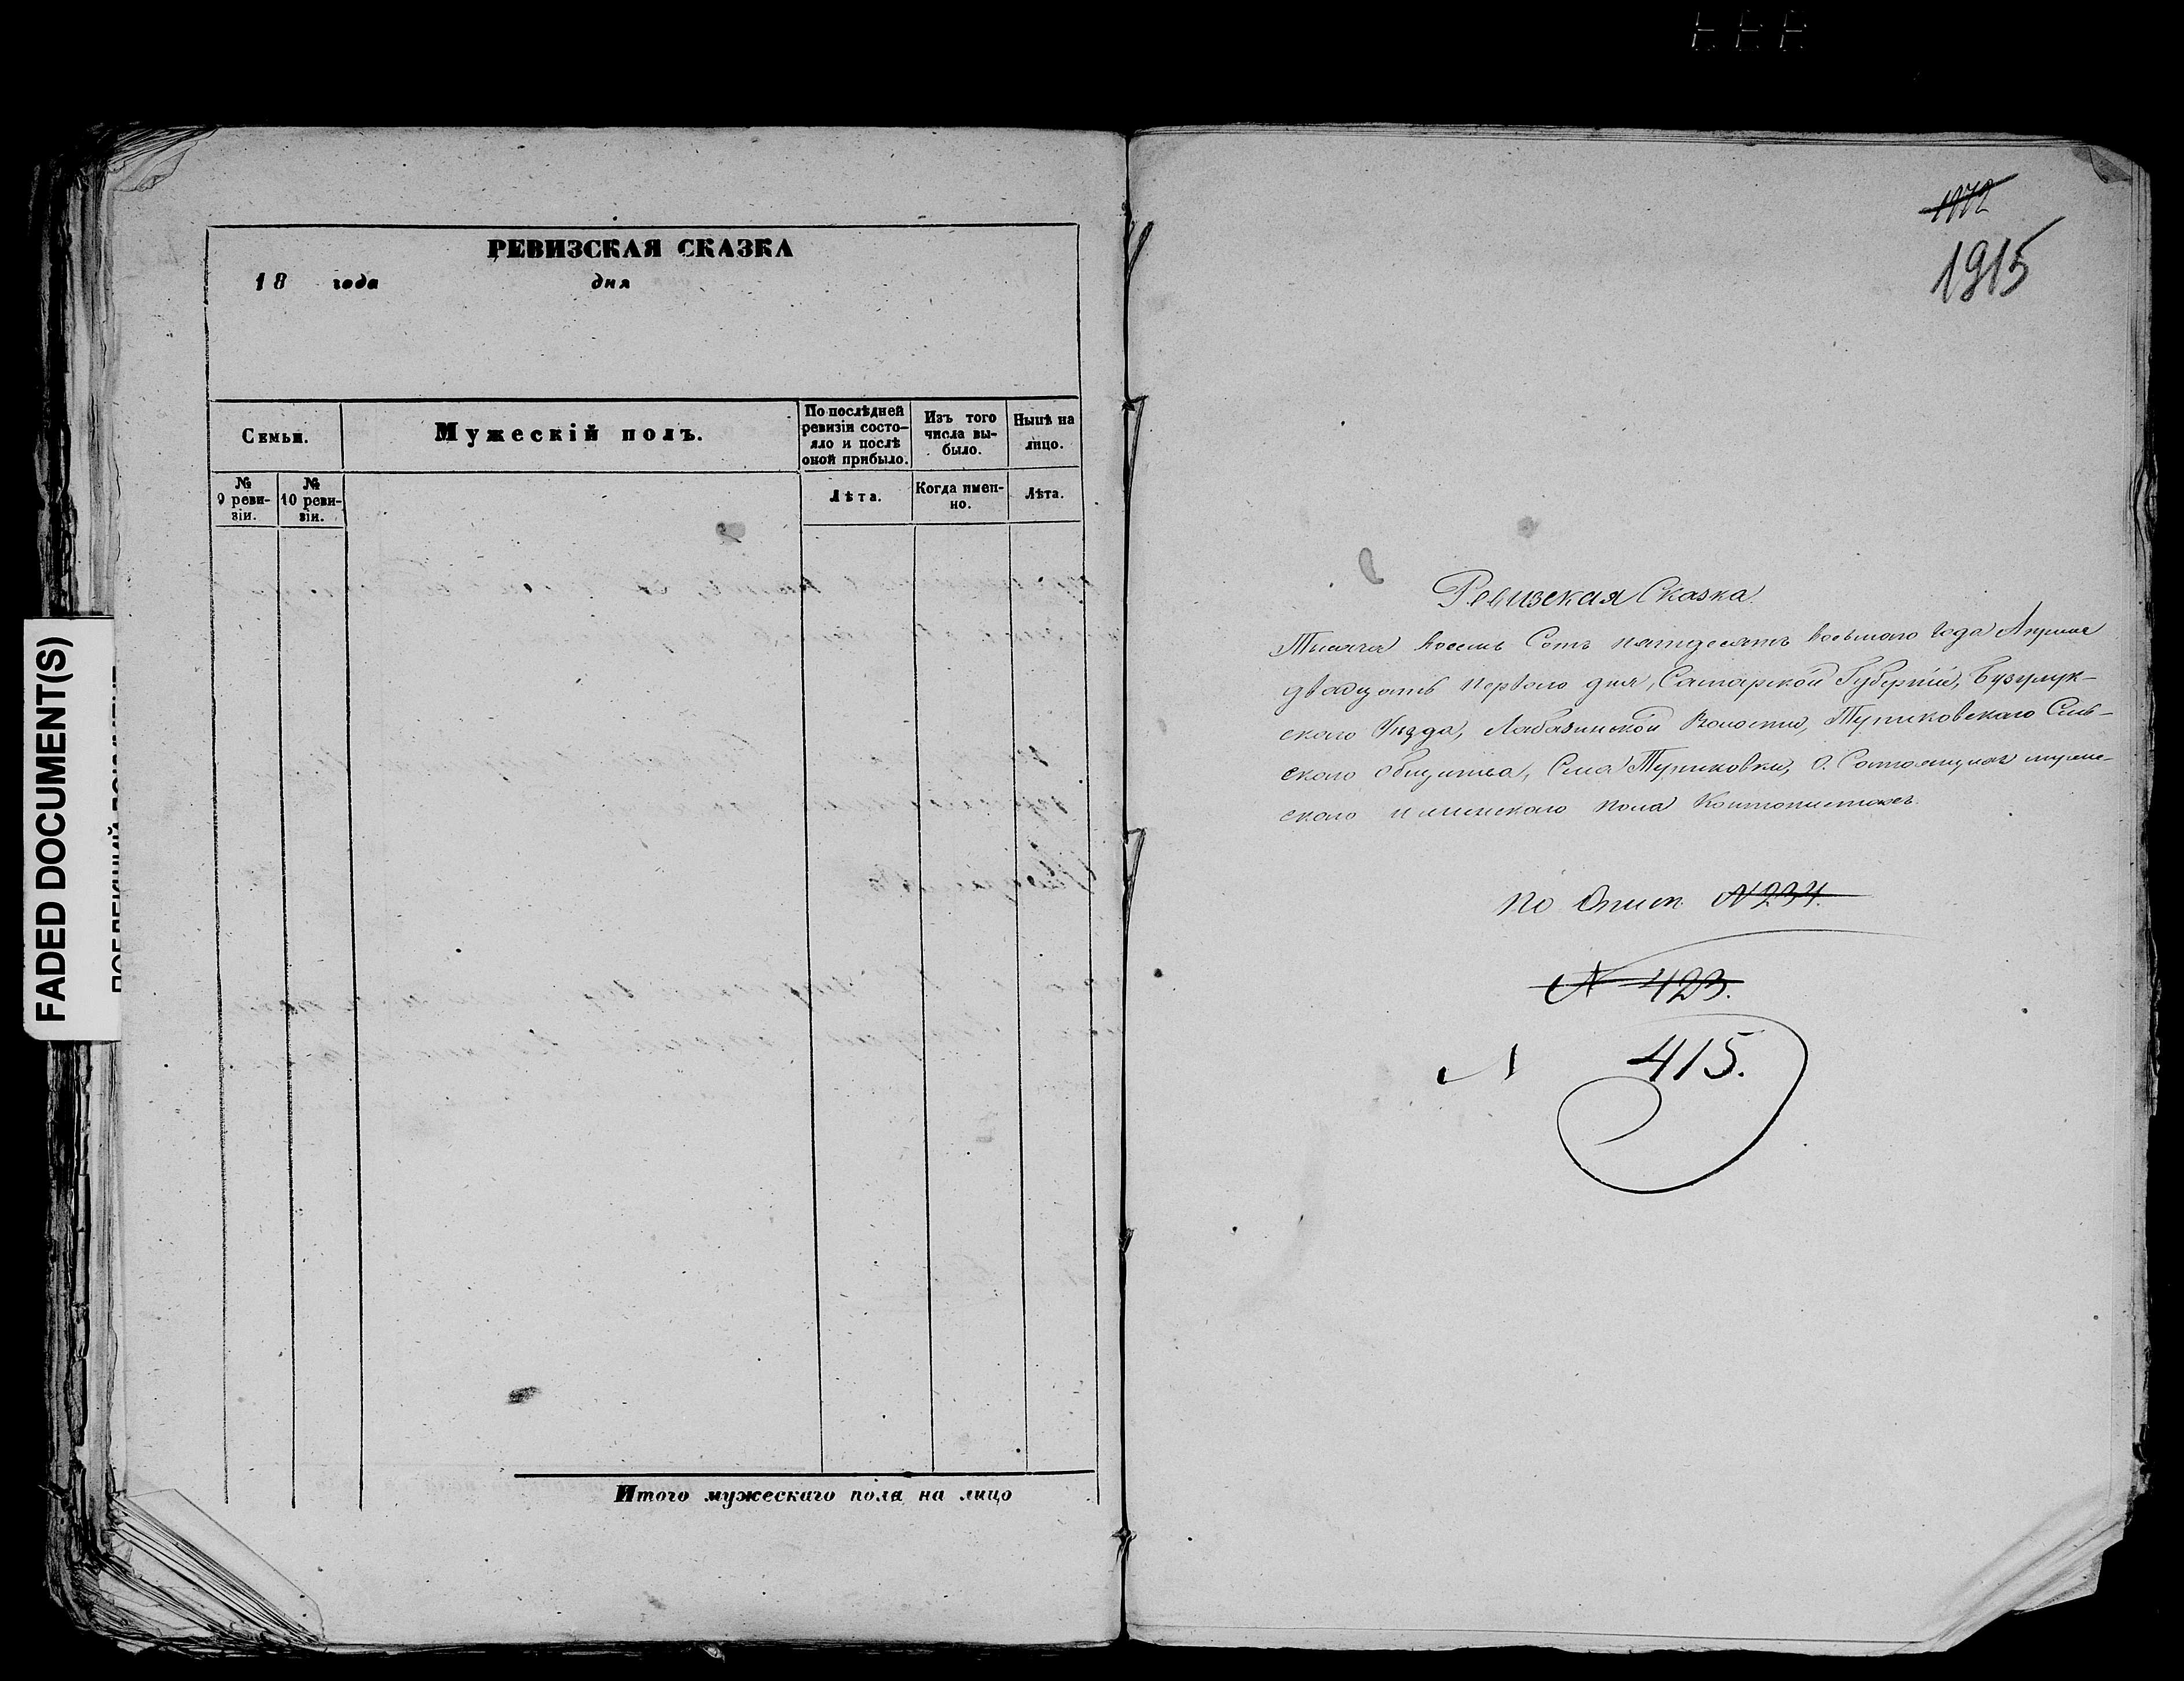 FADED DOCUMENT(S)
РЕВИЗСКАЯ СКАЗКА
18 года дня
Семьи.
Мужескій полъ.
По послѣдней
ревизіи состо-
яло и послѣ
оной прибыло.
Изъ того
числа вы-
было.
Нынѣ на
лицо.
№
9 реви-
зіи.
№
10 реви-
зіи.
Лѣта.
Когда имен-
но.
Лѣта.
Итого мужескаго пола на лицо
1915
Ревизская Сказка
Тысяча восемь Сотъ пятидесятъ восьмаго Года Апреля
двадцать перваго дня, Самарской Губерніи, Бузулук-
скаго Уѣзда, Лабазинской Волости, Тупиковскаго Сель-
скаго общества, Села Тупиковки, О. Состоящихъ мужес-
скаго и женскаго пола
По Описи № 234.
№ 423.
№ 415.